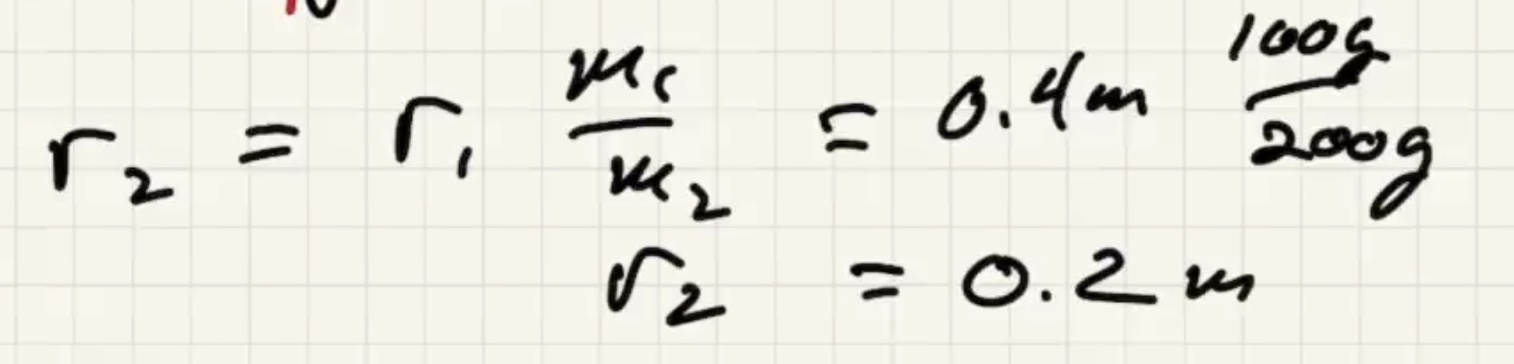 r₂ = r₁ m₁/m₂ = 0.4m 100g/200g
r₂ = 0.2 m